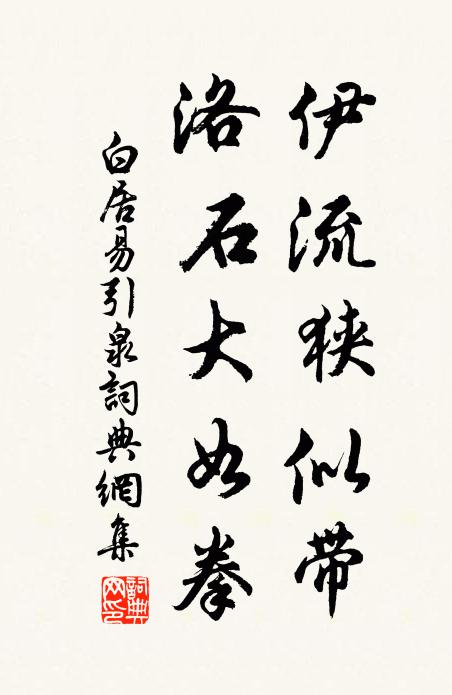 伊流狹似帶
洛石大如拳
白居易引泉詞典網集
詞典網印